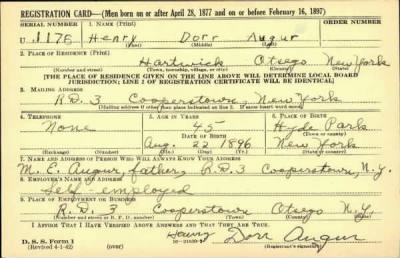 REGISTRATION CARD—(Men born on or after April 28, 1877 and on or before February 16, 1897)
SERIAL NUMBER 1. NAME (Print) ORDER NUMBER
U 1176 Henry Dorr Augur
(First) (Middle) (Last)
2. PLACE OF RESIDENCE (Print)
Hartwick Otsego New York
(Number and street) (Town, township, village, or city) (County) (State)
[THE PLACE OF RESIDENCE GIVEN ON THE LINE ABOVE WILL DETERMINE LOCAL BOARD
JURISDICTION; LINE 2 OF REGISTRATION CERTIFICATE WILL BE IDENTICAL]
3. MAILING ADDRESS
R.D. 3 Cooperstown, New York
[Mailing address if other than place indicated on line 2. If same insert word same]
4. TELEPHONE 5. AGE IN YEARS 6. PLACE OF BIRTH
None 45 Hyde Park
DATE OF BIRTH (Town or county)
Aug. 22 1896 New York
(Exchange) (Number) (Mo.) (Day) (Yr.) (State or country)
7. NAME AND ADDRESS OF PERSON WHO WILL ALWAYS KNOW YOUR ADDRESS
M. E. Augur, father, R.D. 3 Cooperstown, N.Y.
8. EMPLOYER'S NAME AND ADDRESS
Self-employed
9. PLACE OF EMPLOYMENT OR BUSINESS
R.D. 3 Cooperstown Otsego N.Y.
(Number and street or R. F. D. number) (Town) (County) (State)
I AFFIRM THAT I HAVE VERIFIED ABOVE ANSWERS AND THAT THEY ARE TRUE.
D. S. S. Form 1 Henry Dorr Augur
(Revised 4-1-42) (over) (Registrant's signature)